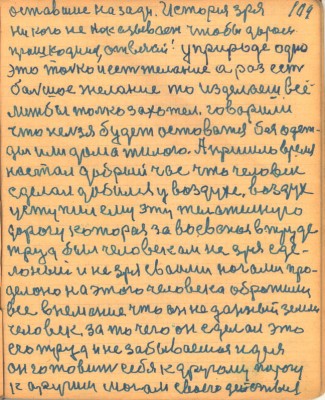 оставшие назади. История зря 109
никого не показывает чтобы дорась
прошкодила, отвечай! у природе одно
это толко и ест желание а раз ест
балшое желание то изделаем всё
литбы толко захотел. говорили
что нелзя будет остоватся без одеж-
ды или дома жилого. А пришло время
настал добрий час что человек
сделал добился у воздухе. воздух
уступил ему эту
дорогу которая завоевона в труде
труд был человеком не зря сде-
лоний и не зря своими ногами про-
делоно на этого человека обротили
все внемание что он не данный земли
человек за то чего он сделал это
его труд и не забываемая идея
он готовит себя к другому порогу
к другим могам своего действия